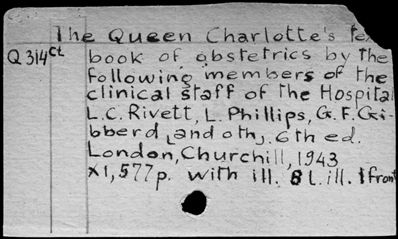 The Queen Charlotte's tex
Q 314 Ct book of obstetrics by the
following members of the
clinical staff of the Hospital
L.C. Rivett, L. Phillips, G.F. Gi-
bberd, and oth. 6th ed.
London, Churchill, 1943
XI, 577p. with ill. 8 l. ill. 1 front